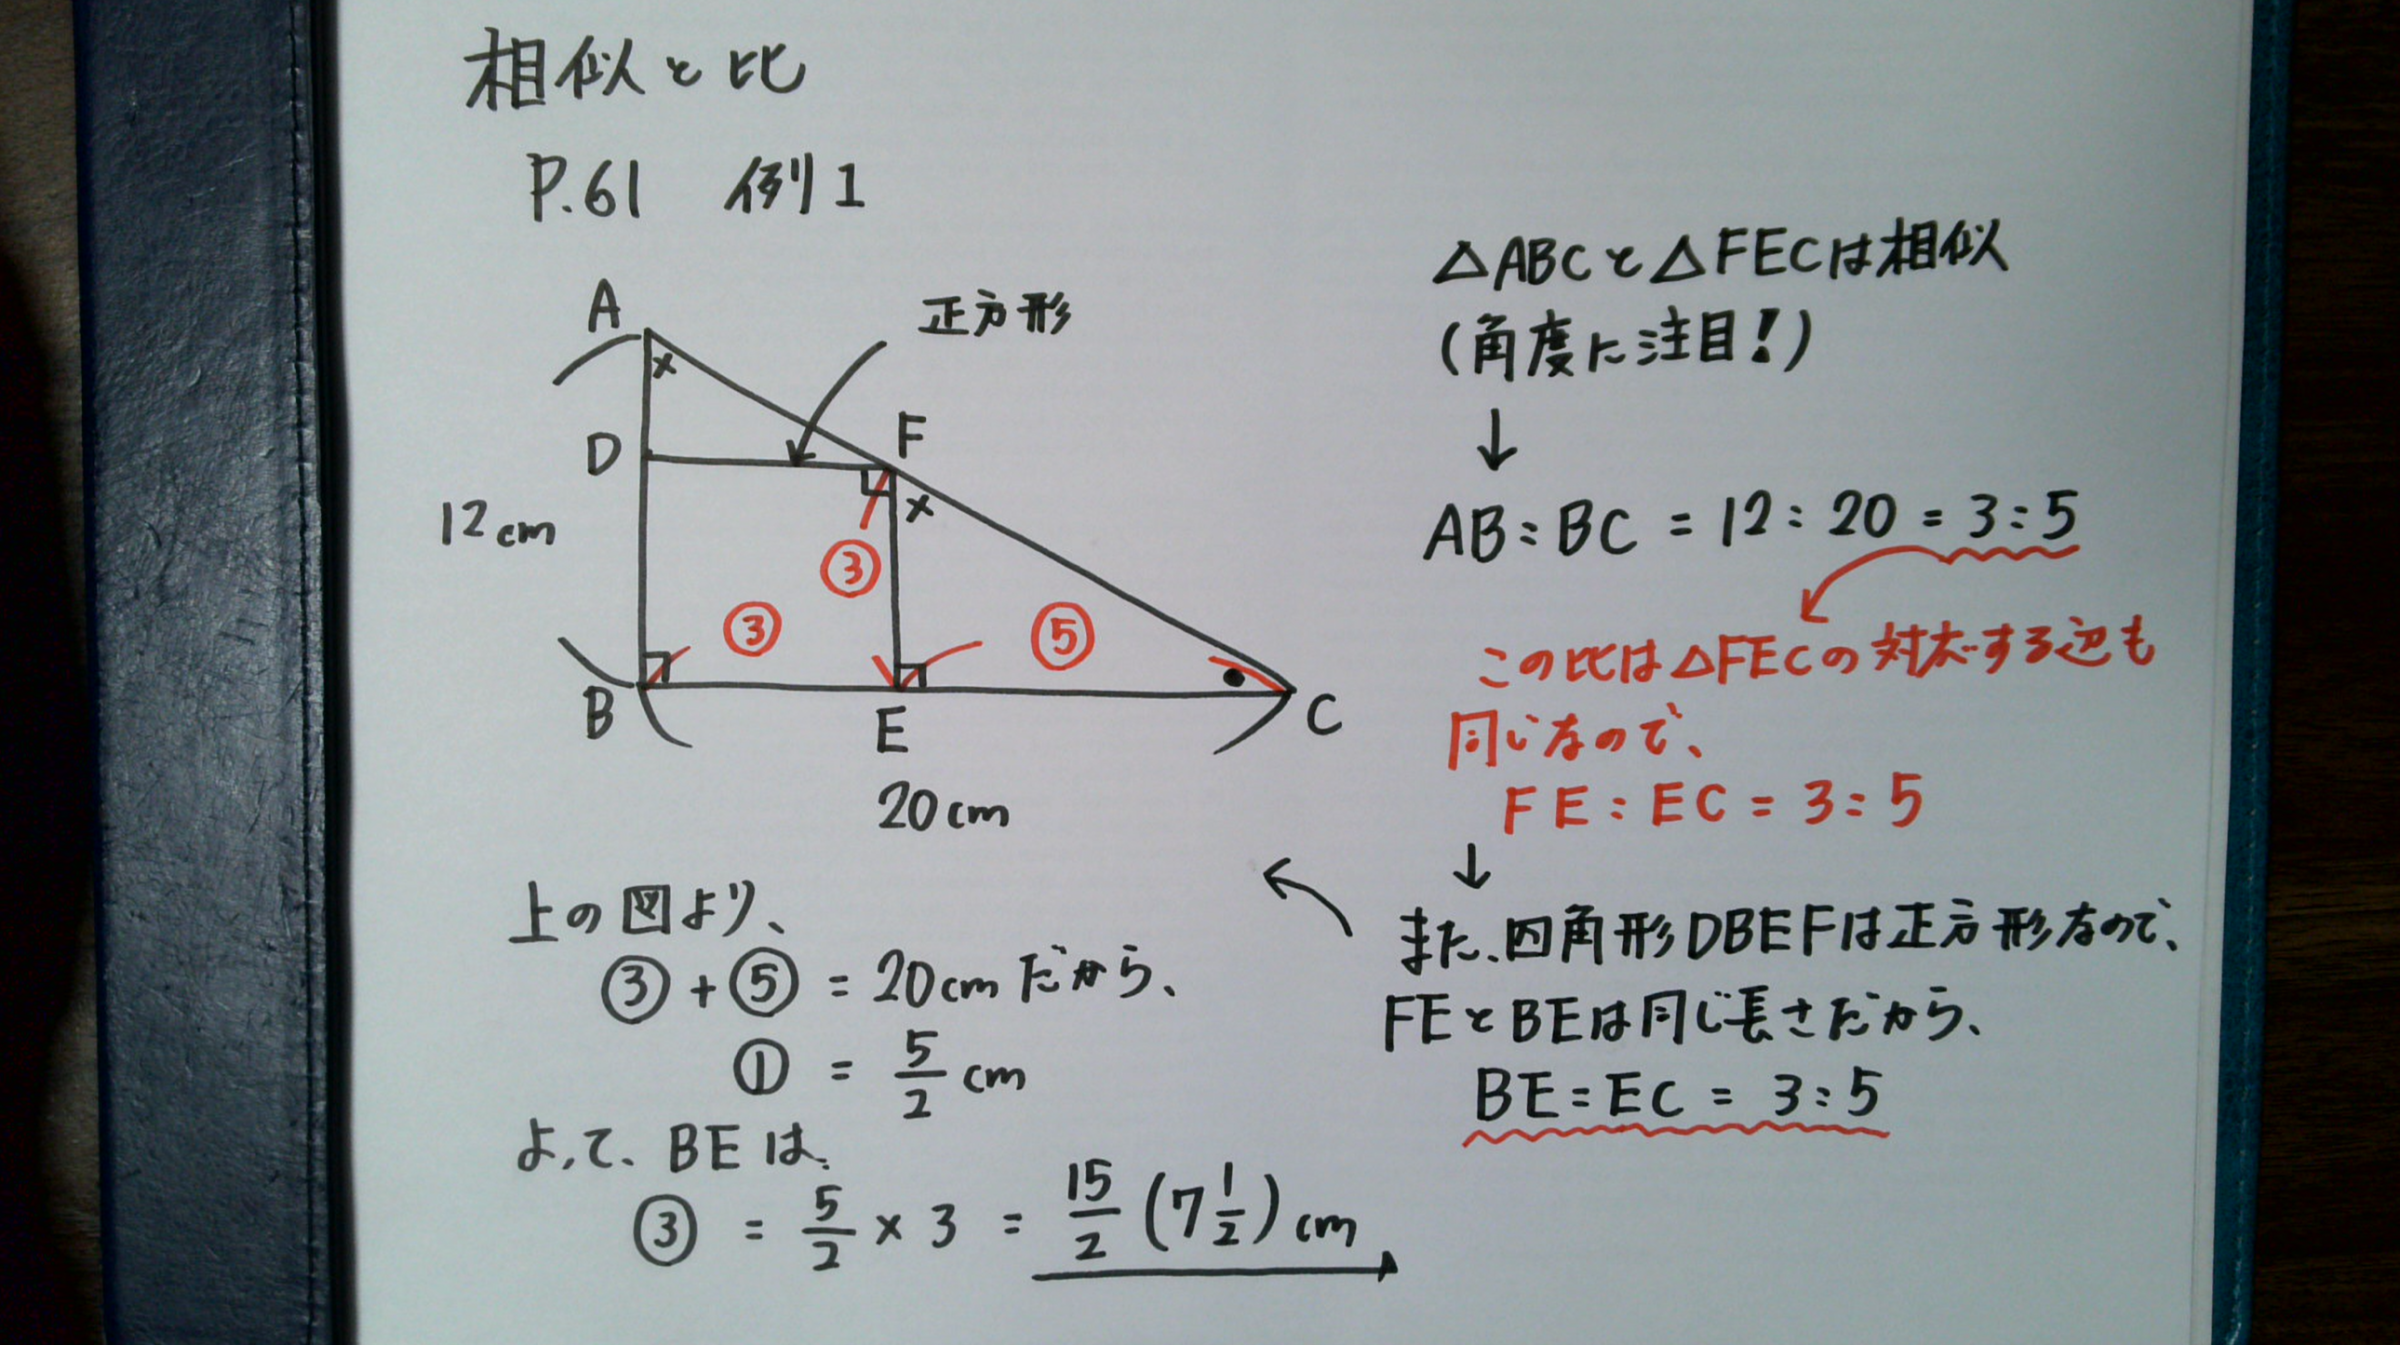 相似と比
P.61 例1
A
正方形
×
D
F
×
12cm
③
③
⑤
B
E
C
20cm
△ABCと△FECは相似
(角度に注目!)
↓
AB:BC = 12:20 = 3:5
この比は△FECの対応する辺も
同じなので、
FE:EC = 3:5
↓
また、四角形DBEFは正方形なので、
FEとBEは同じ長さだから、
BE:EC = 3:5
上の図より、
③+⑤ = 20cmだから、
① = 5/2 cm
よって、BEは、
③ = 5/2 × 3 = 15/2 (7 1/2) cm